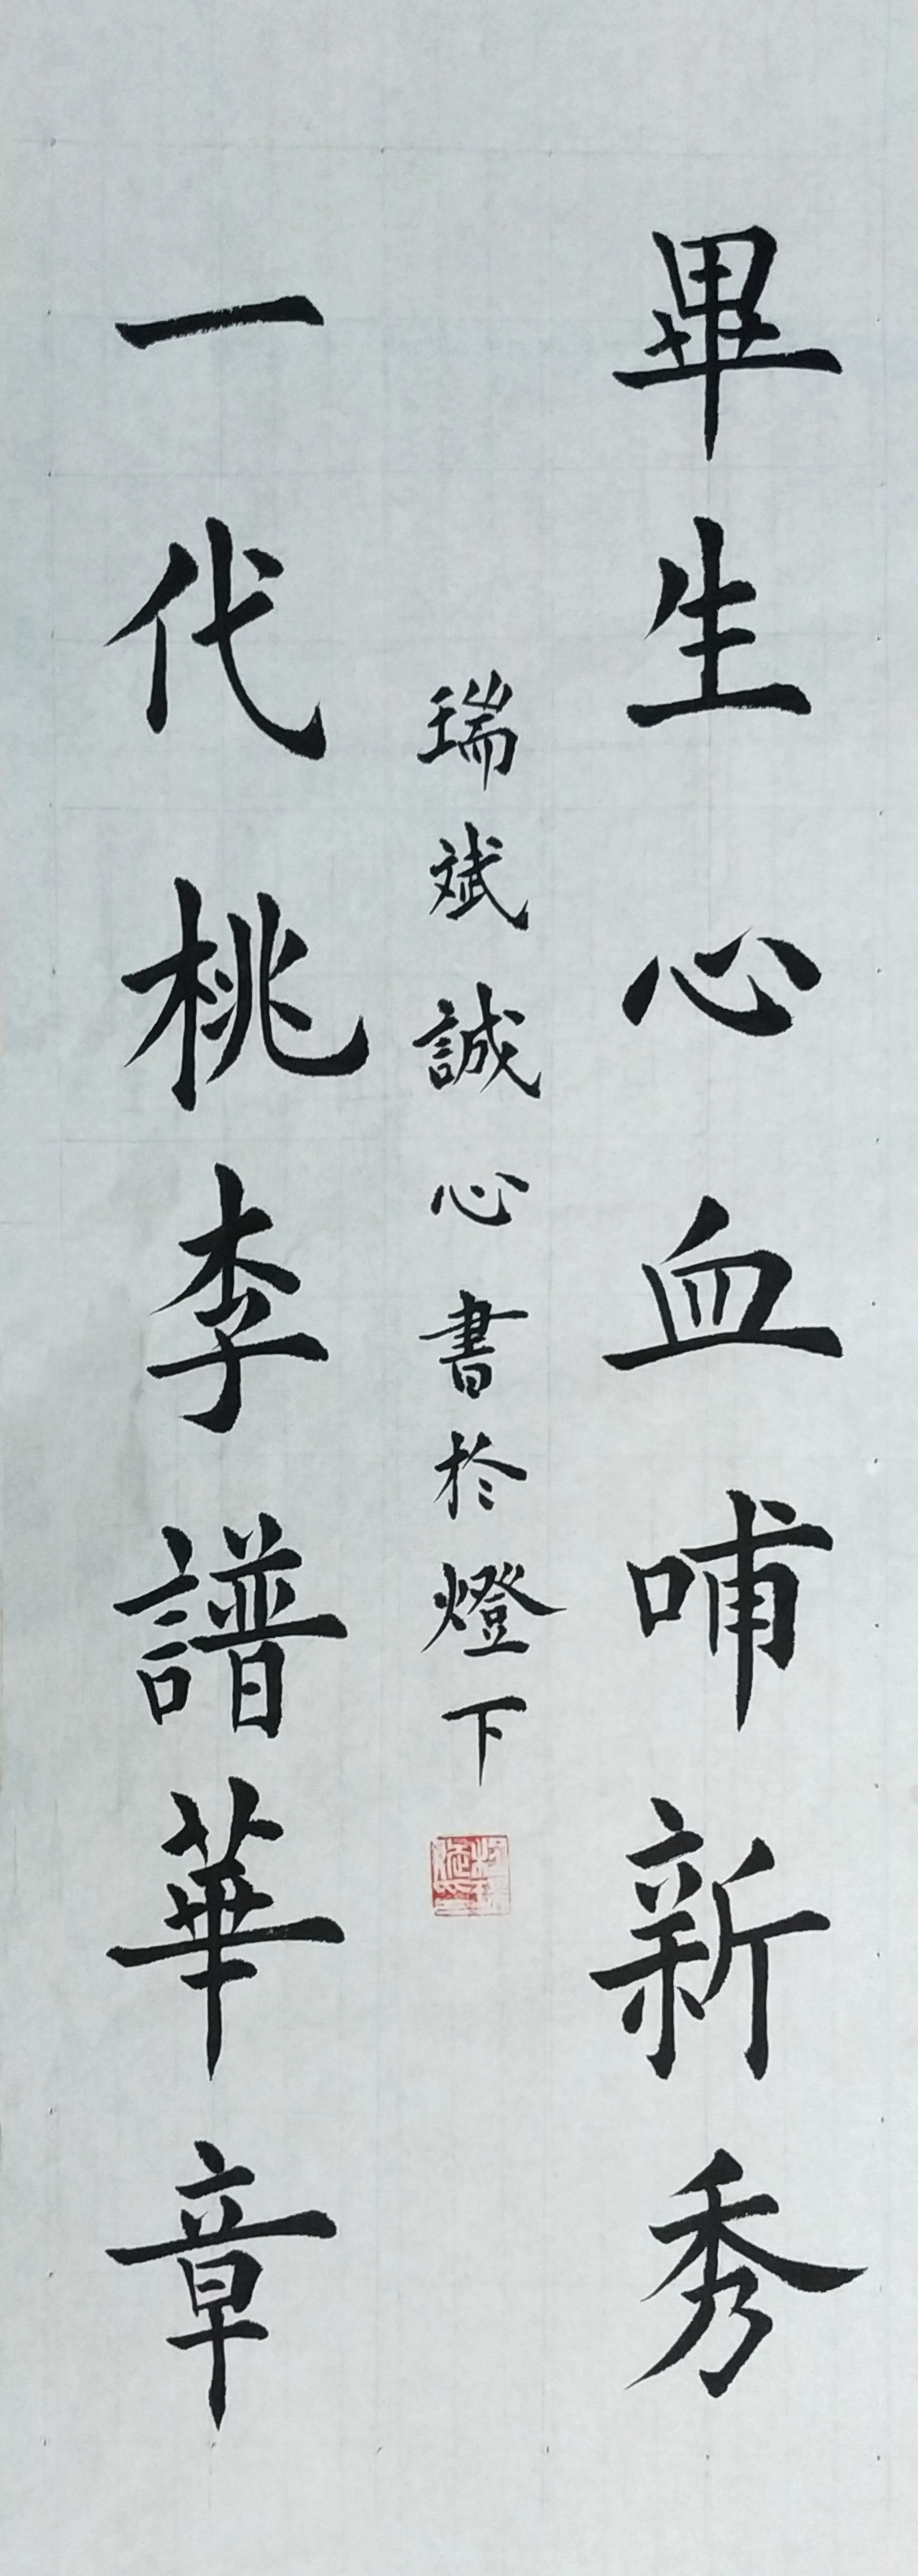 畢生心血哺新秀
一代桃李譜華章
瑞斌誠心書於燈下